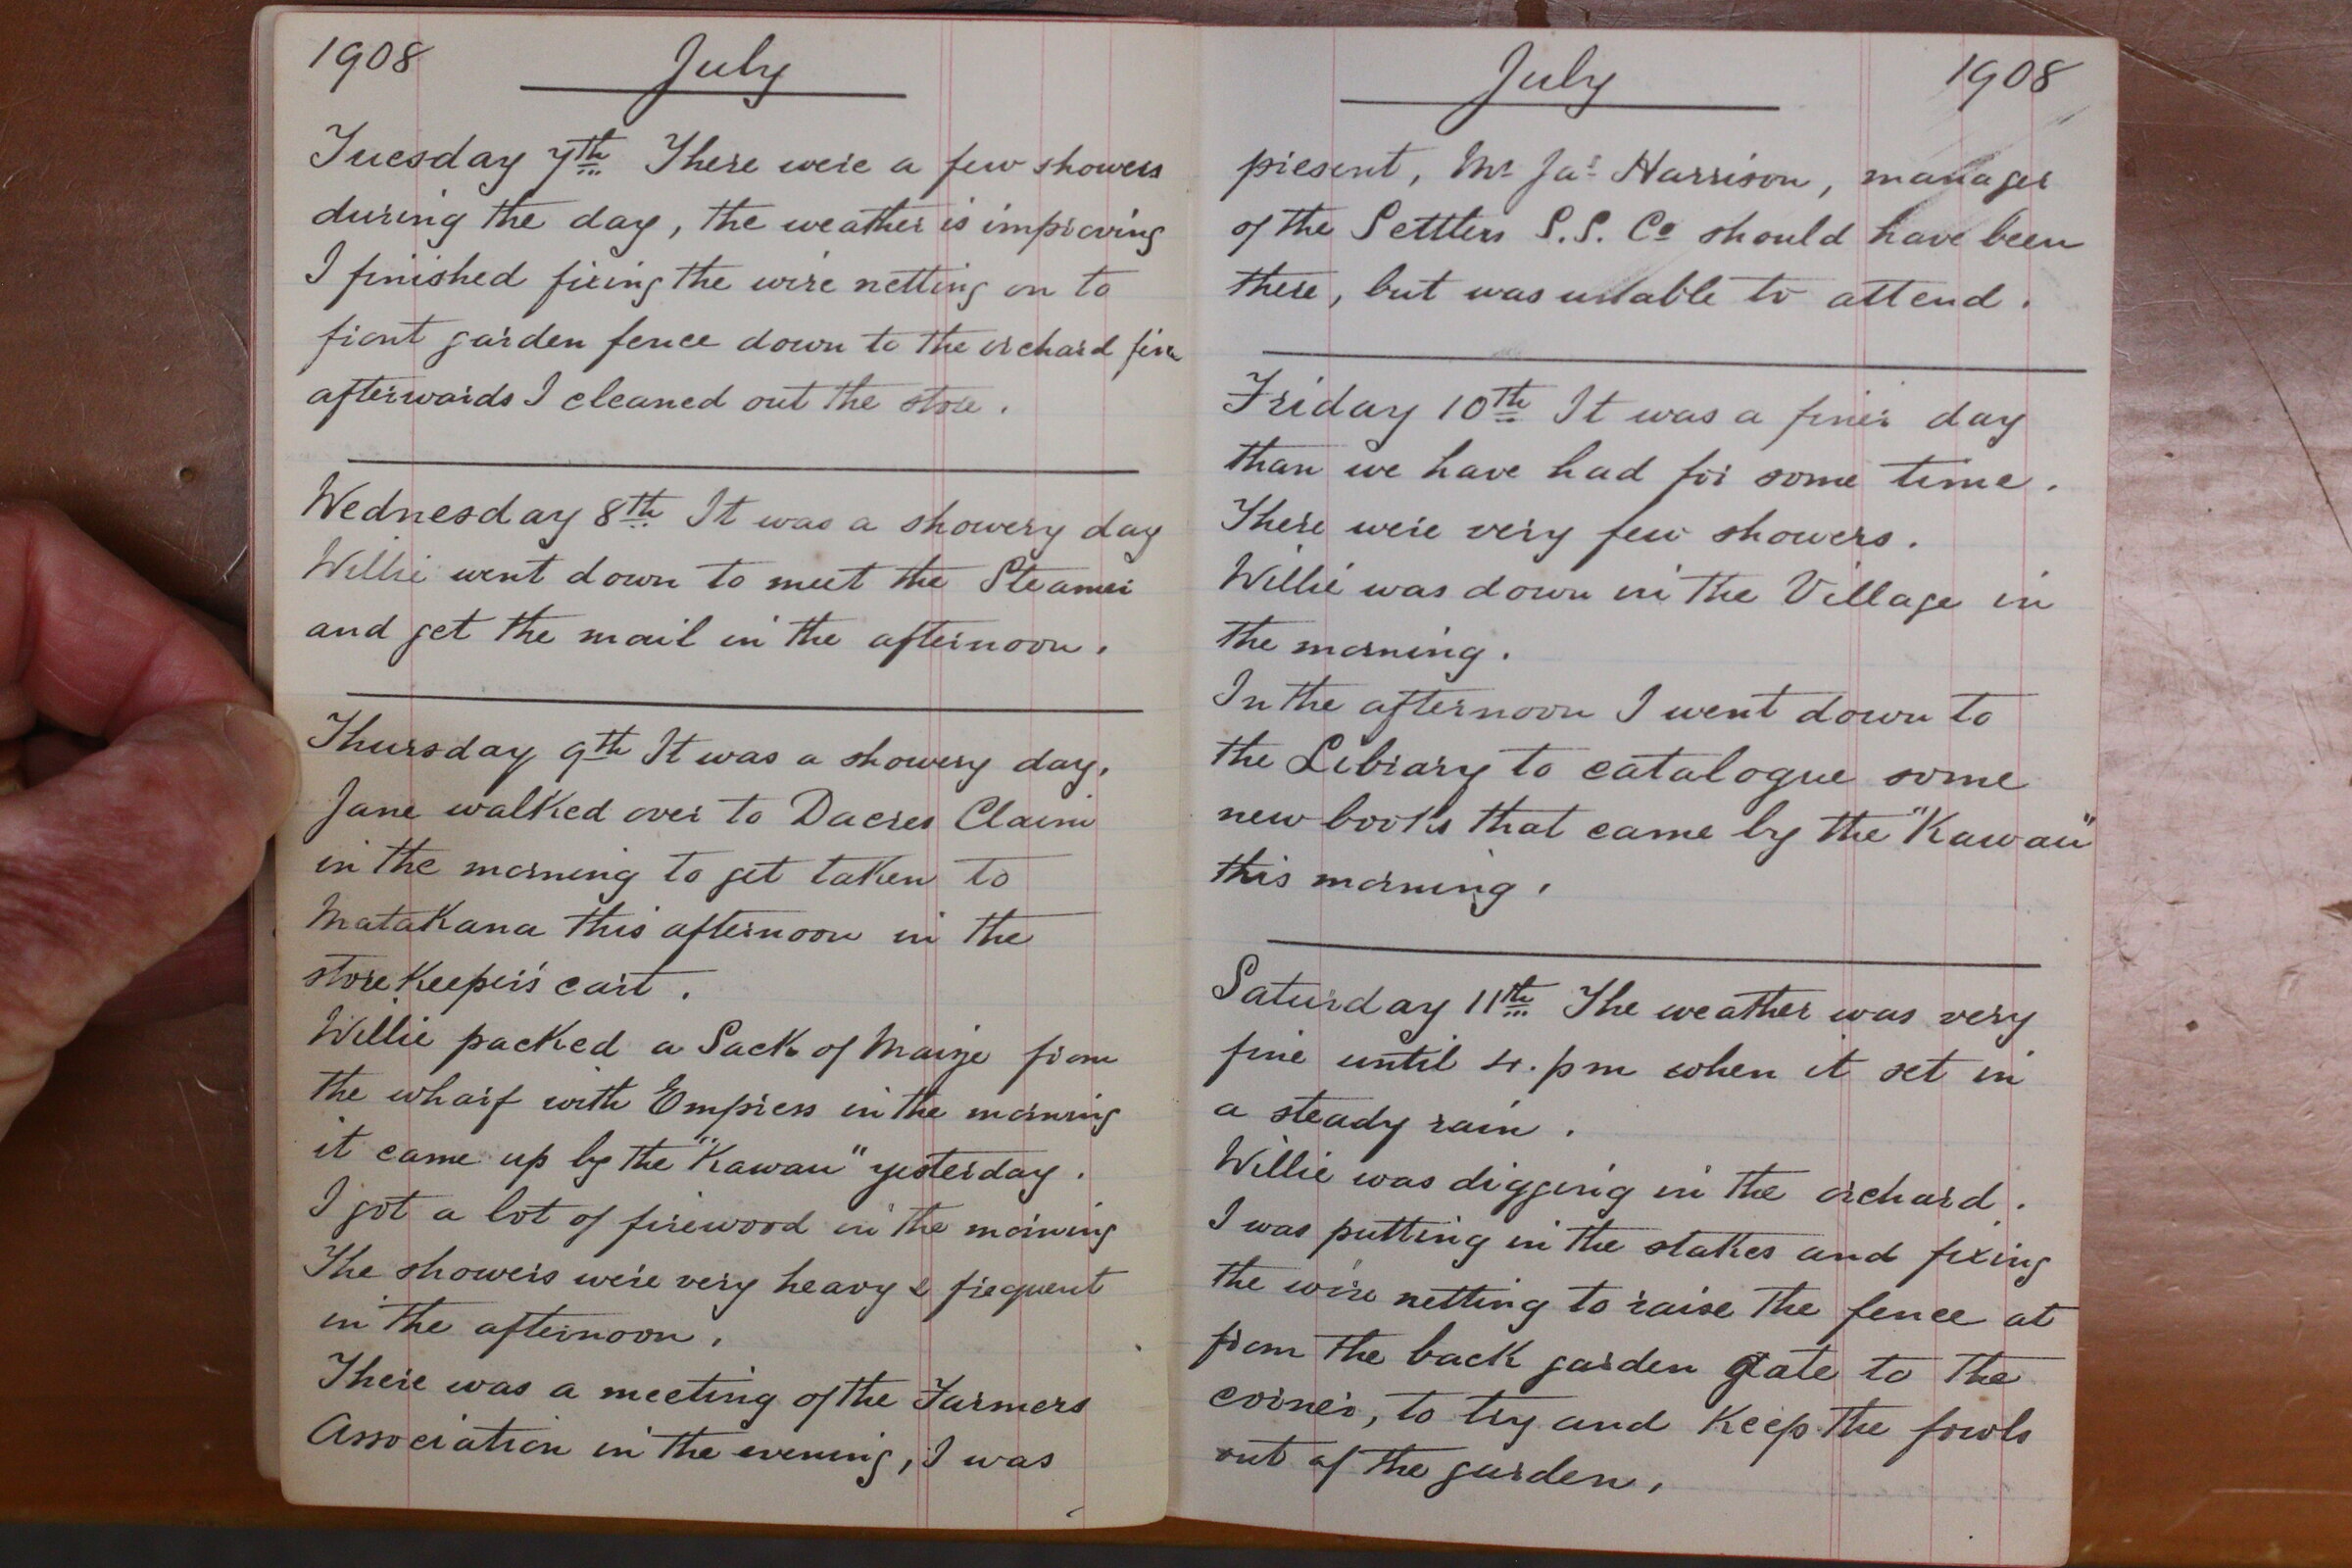 1908 July
Tuesday 7th There were a few showers
during the day, the weather is improving
I finished fixing the wire netting on to
front garden fence down to the orchard
afterwards I cleaned out the store.
Wednesday 8th It was a showery day
Willie went down to meet the Steamer
and get the mail in the afternoon.
Thursday 9th It was a showery day.
Jane walked over to Dacres Claim
in the morning to get taken to
Matakana this afternoon in the
storekeeper's cart.
Willie packed a Sack of Maize from
the wharf with Empress in the morning
it came up by the "Kawau" yesterday.
I got a lot of firewood in the morning
The showers were very heavy & frequent
in the afternoon.
There was a meeting of the Farmers
Association in the evening, I was
July 1908
present, Mr Jas Harrison, manager
of the Settlers S.S. Co should have been
there, but was unable to attend.
Friday 10th It was a finer day
than we have had for some time.
There were very few showers.
Willie was down in the Village in
the morning.
In the afternoon I went down to
the Library to catalogue some
new books that came by the "Kawau"
this morning.
Saturday 11th The weather was very
fine until 4.pm when it set in
a steady rain.
Willie was digging in the orchard.
I was putting in the stakes and fixing
the wire netting to raise the fence at
from the back garden gate to the
corner, to try and keep the fowls
out of the garden.